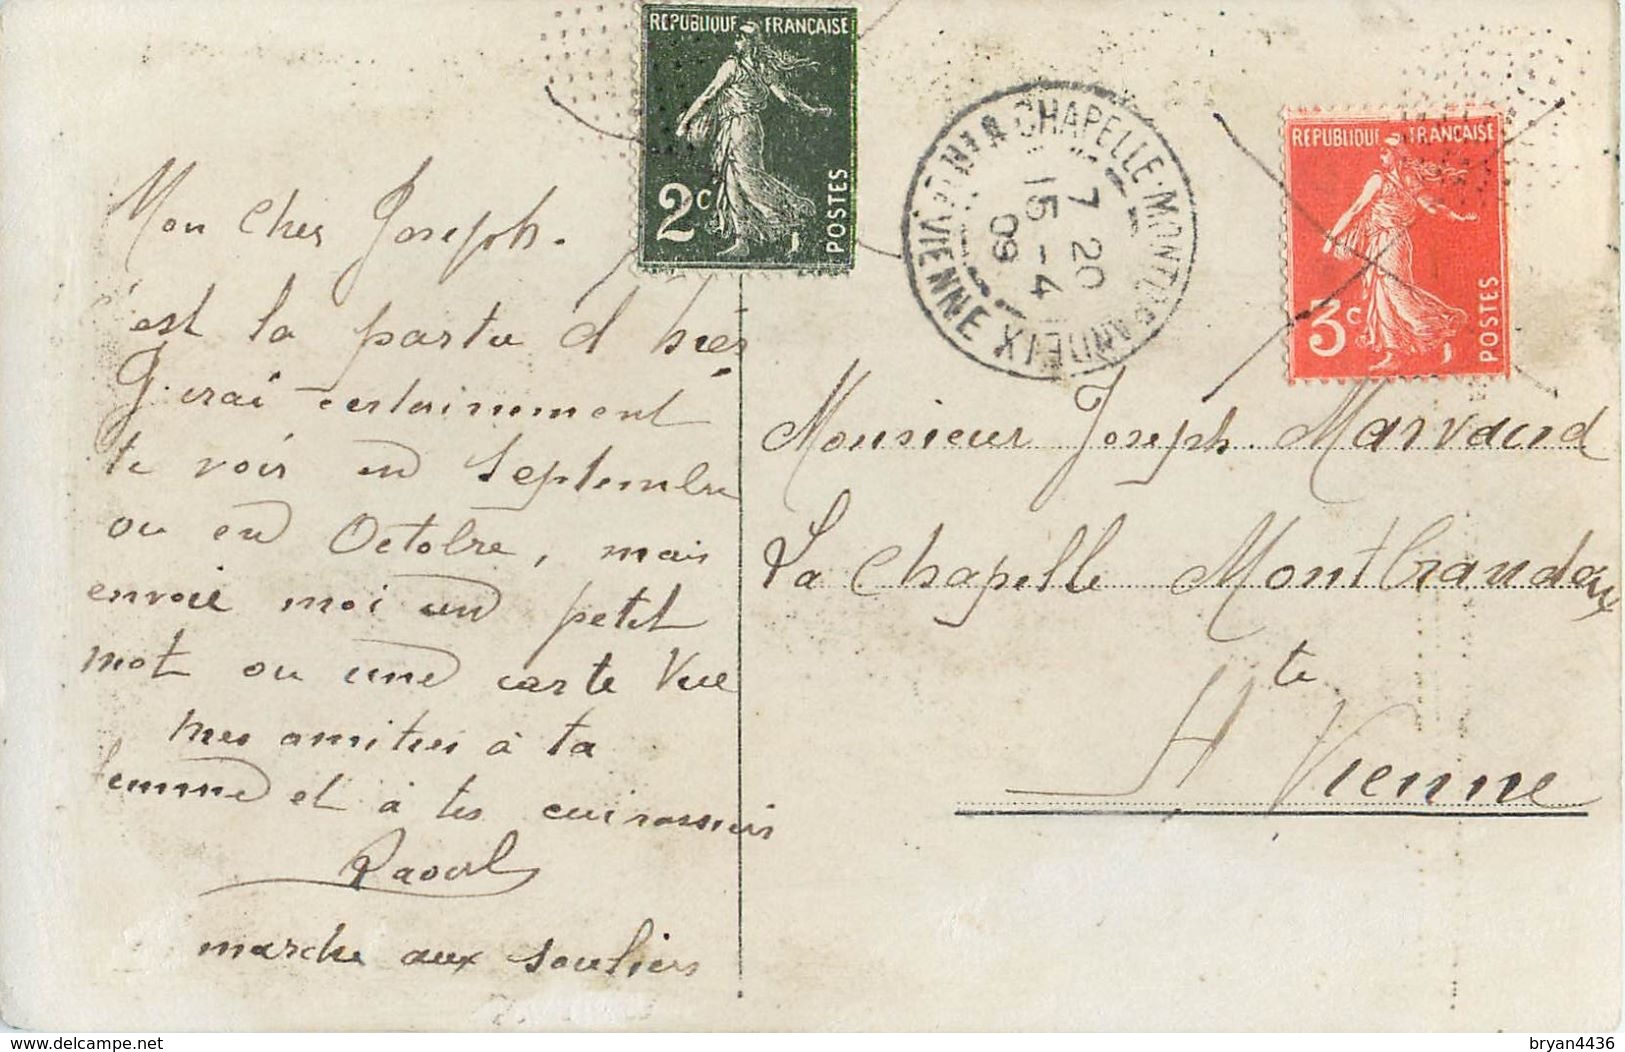 REPUBLIQUE FRANÇAISE
2c
POSTES
LA CHAPELLE-MONTBRANDEIX
HTE VIENNE
7 20
15 - 4
09
REPUBLIQUE FRANÇAISE
3c
POSTES
Mon cher Joseph.
c'est la partie d
J'irai certainement
te voir en Septembre
ou en Octobre, mais
envoie moi un petit
mot ou une carte Vue
mes amities à ta
femme et à tes
Raoul
marche aux souliers
Monsieur Joseph Marvaud
La Chapelle Montbrandeix
Hte
Vienne
delcampe.net
bryan4436